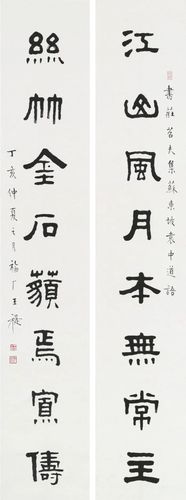 江山風月本無常主
書莊苕夫集蘇東坡袁中道語
絲竹金石藐焉寡儔
丁亥仲夏之月福厂王禔